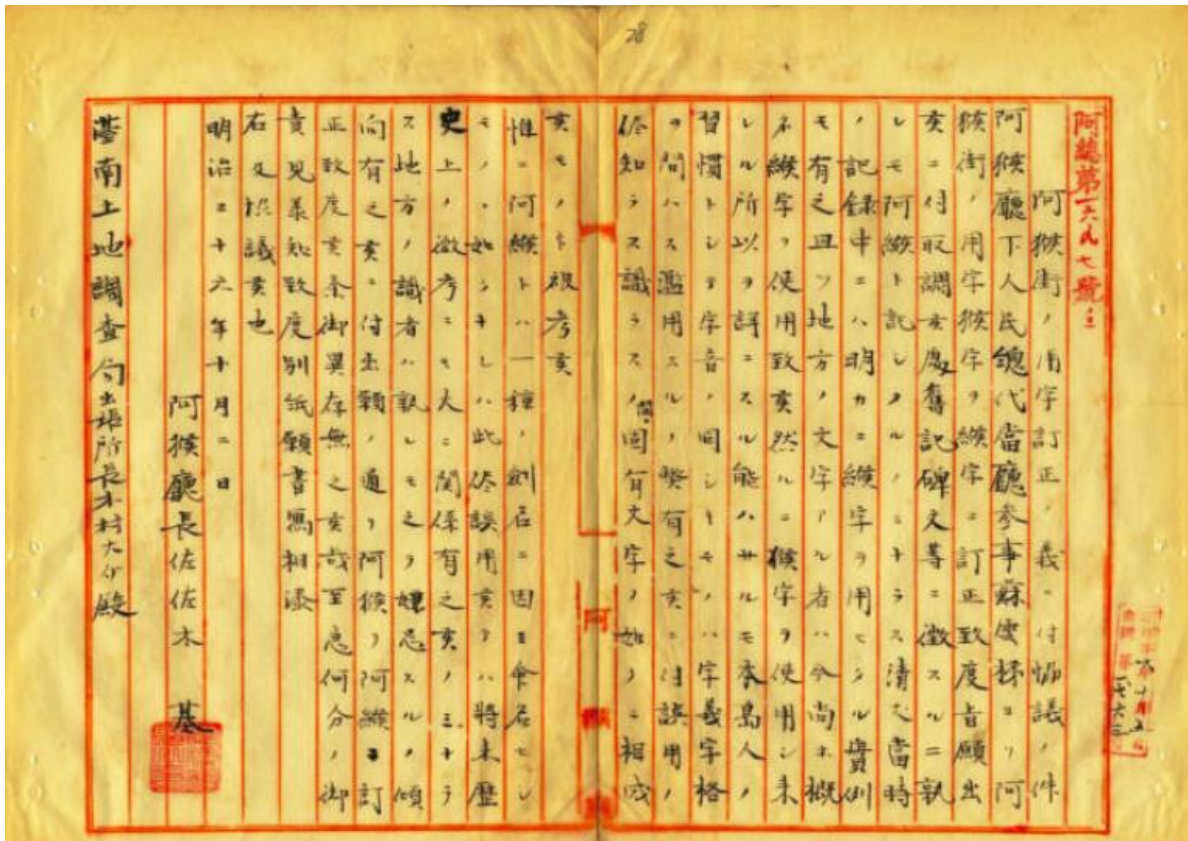 28
阿總第一六八七號ノ二
阿猴街ノ用字訂正ノ義ニ付協議ノ件
阿猴廳下人民總代當廳參事蘇雲梯ヨリ阿
猴街ノ用字猴字ヲ緱字ニ訂正致度旨願出
候ニ付取調候處舊記碑文等ニ徴スルニ孰
レモ阿緱ト記シアルノミナラス清國當時
ノ記録中ニハ明カニ緱字ヲ用ヒタル實例
モ有之且ツ地方ノ文字アル者ハ今尚ホ概
ネ緱字ヲ使用致候然ルニ猴字ヲ使用シ来
レル所以ヲ詳ニスル能ハサルモ本島人ノ
習慣トシテ字音ノ同シキモノハ字義字格
ヲ問ハス濫用スルノ弊有之候ニ付誤用ノ
後知ラス識ラスノ間固有文字ノ如クニ相成
候モノト被考候
惟ニ阿緱トハ一種ノ創名ニ因ミ命名セシ
モノヽ如シ若シ此終誤用候テハ將来歷
史上ノ徴考ニモ大ニ関係有之候ノミナラ
ス地方ノ識者ハ孰レモ之ヲ嫌忌スルノ傾
向有之候ニ付出願ノ通リ阿猴ヲ阿緱ニ訂
正致度候條御異存無之候哉至急何分ノ御
貴見承知致度別紙願書寫相添
右及協議候也
明治三十六年十月二日
阿猴廳長佐佐木 基
臺南土地調查局出張所長木村大介殿
阿猴廳